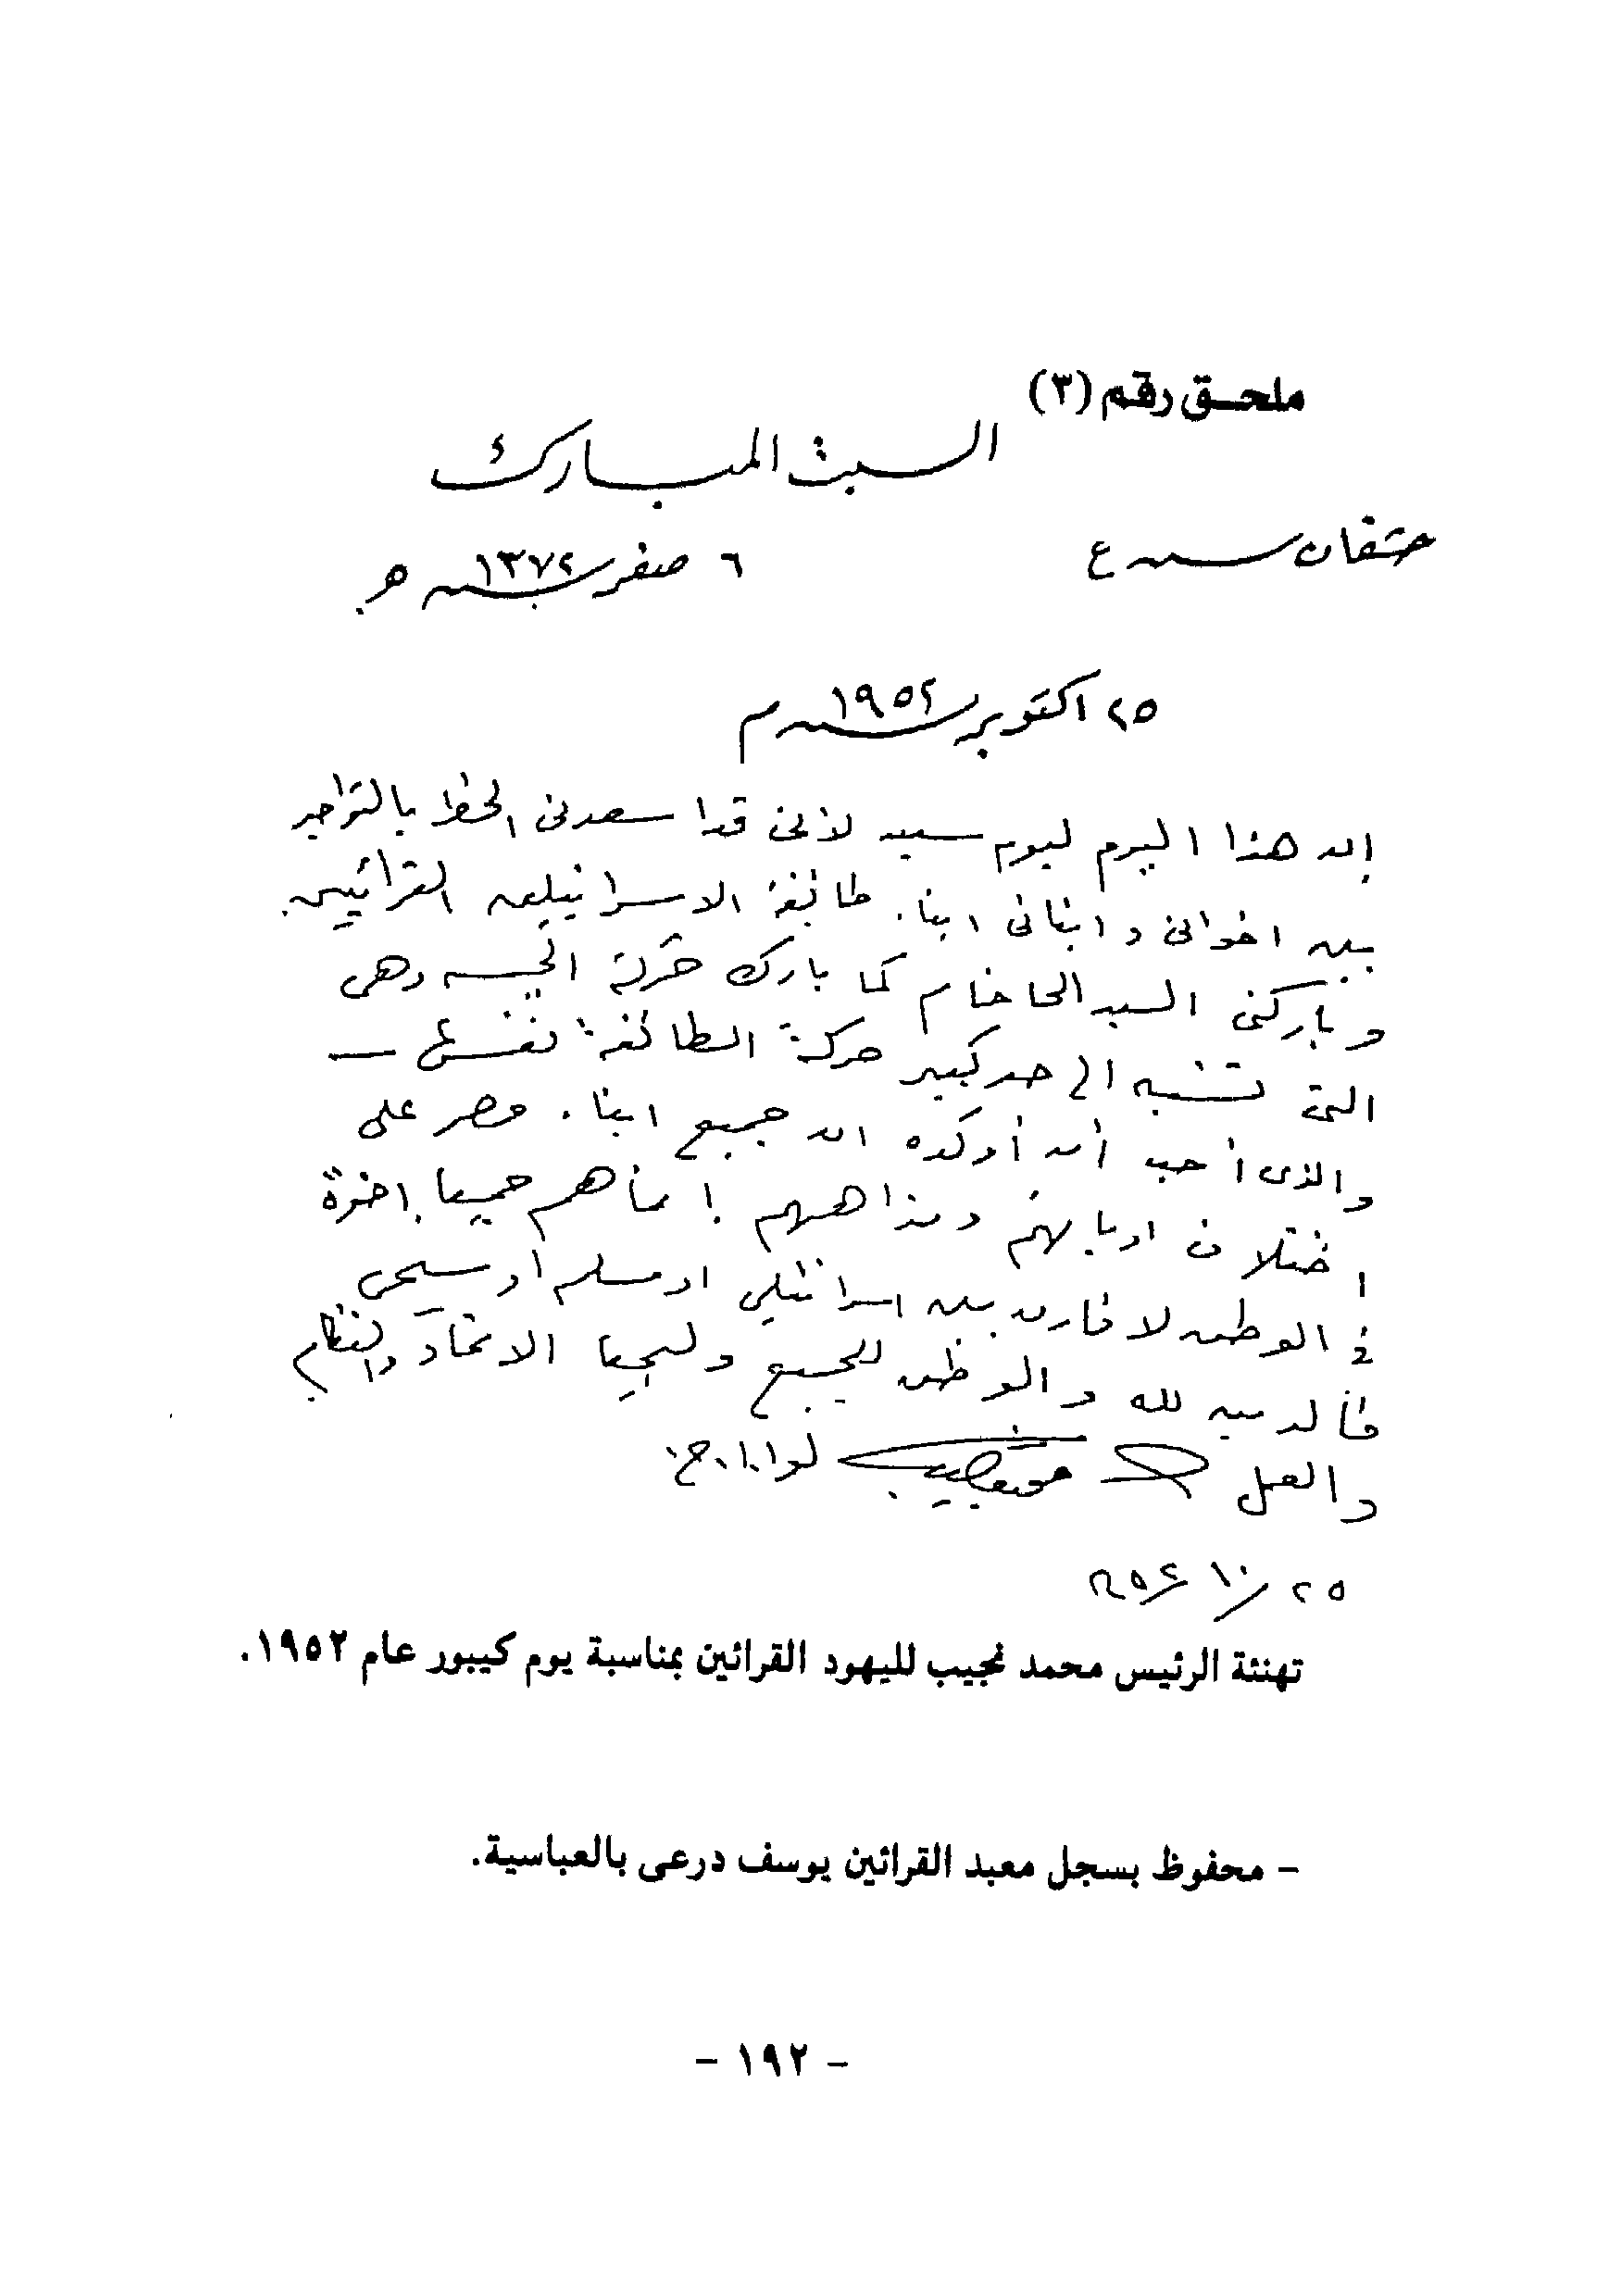 ملحق رقم (٣)
السبت المبارك
حشفان سنة ٤
٦ صفر سنة ١٣٧٢ هـ.
٢٥ اكتوبر سنة ١٩٥٢ م
إن هذا اليوم ليوم سعيد لأنى قد اسعدنى الحظ بالتواجد
بين اخوانى وابنائى ابناء طائفة الاسرائيليين القرائيين
وباركنى السيد الحاخام كما بارك حركة الجيش وهى
التى تشبه الى حد كبير حركة الطائفة نفسها —
والذى أحب أن أؤكده ان جميع ابناء مصر على
اختلاف اديانهم ومذاهبهم إنما هم جميعا إخوة
فى الوطن لا فارق بين اسرائيلى او مسلم أو مسيحى
فالدين لله والوطن للجميع وليحيا الاتحاد والنظام
والعمل محمد نجيب لواء أ. ح.
٢٥/١٠/٩٥٢
تهنئة الرئيس محمد نجيب لليهود القرائين بمناسبة يوم كيبور عام ١٩٥٢.
– محفوظ بسجل معبد القرائين يوسف درعى بالعباسية.
– ١٩٢ –